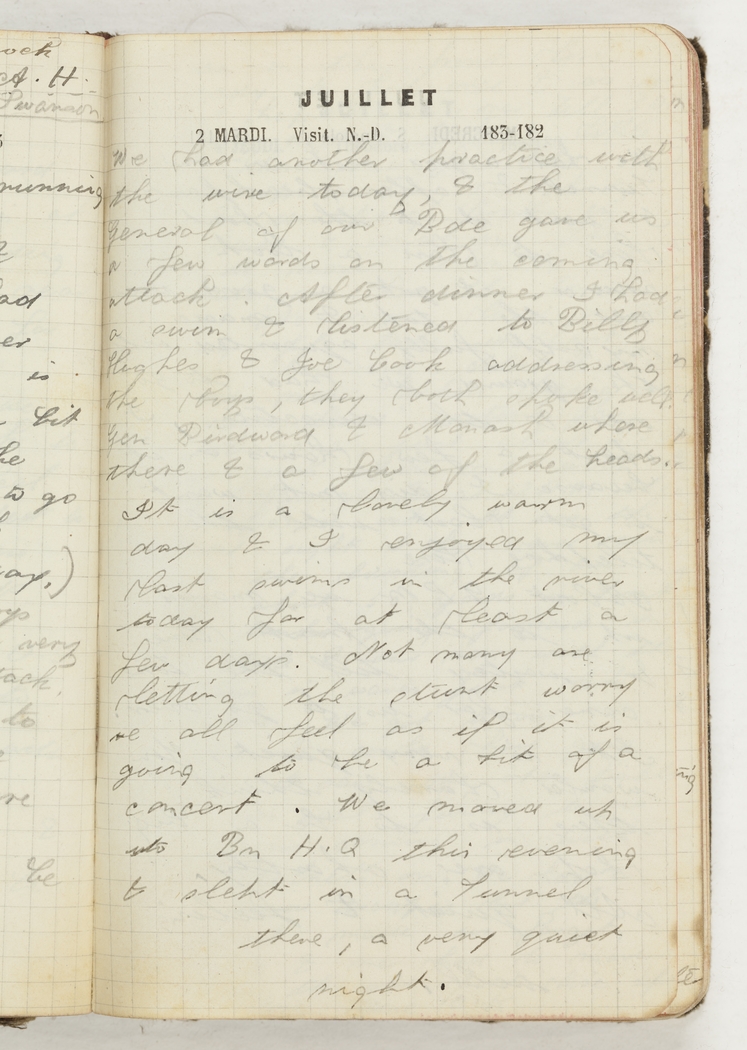 ock
A. H.
Swanson
running
ad
er
is.
bit
he
to go
ay.)
ys
very
tack,
to
re
be
JUILLET
2 MARDI. Visit. N.-D. 183-182
We had another practice with
the wire today, & the
General of our Bde gave us
a few words on the coming
attack. After dinner I had
a swim & listened to Billy
Hughes & Joe Cook addressing
the boys, they both spoke well.
Gen Birdward & Monash where
there & a few of the heads.
It is a lovely warm
day & I enjoyed my
last swim in the river
today for at least a
few days. Not many are
letting the stunt worry
we all feel as if it is
going to be a bit of a
concert. We moved up
into Bn H.Q this evening
& slept in a Tunnel
there, a very quiet
night.